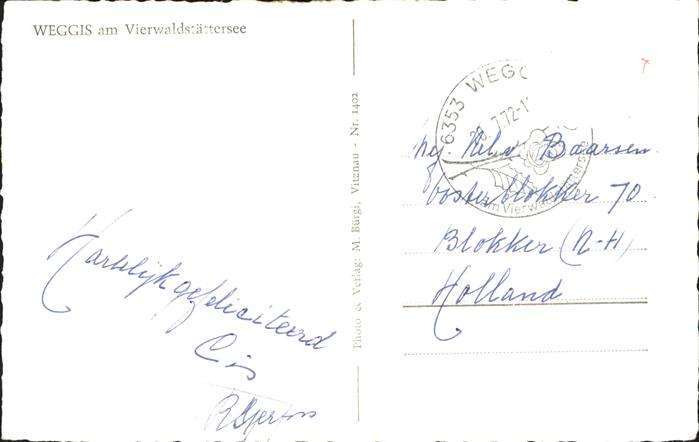 WEGGIS am Vierwaldstättersee
Hartelijk gefeliciteerd
Cis
Photo & Verlag: M. Bürgi, Vitznau - Nr. 1402
6353 WEGG
7.72-1
am Vierwaldstättersee
Baarsen
Oosterblokker 70
Blokker (N-H)
Holland